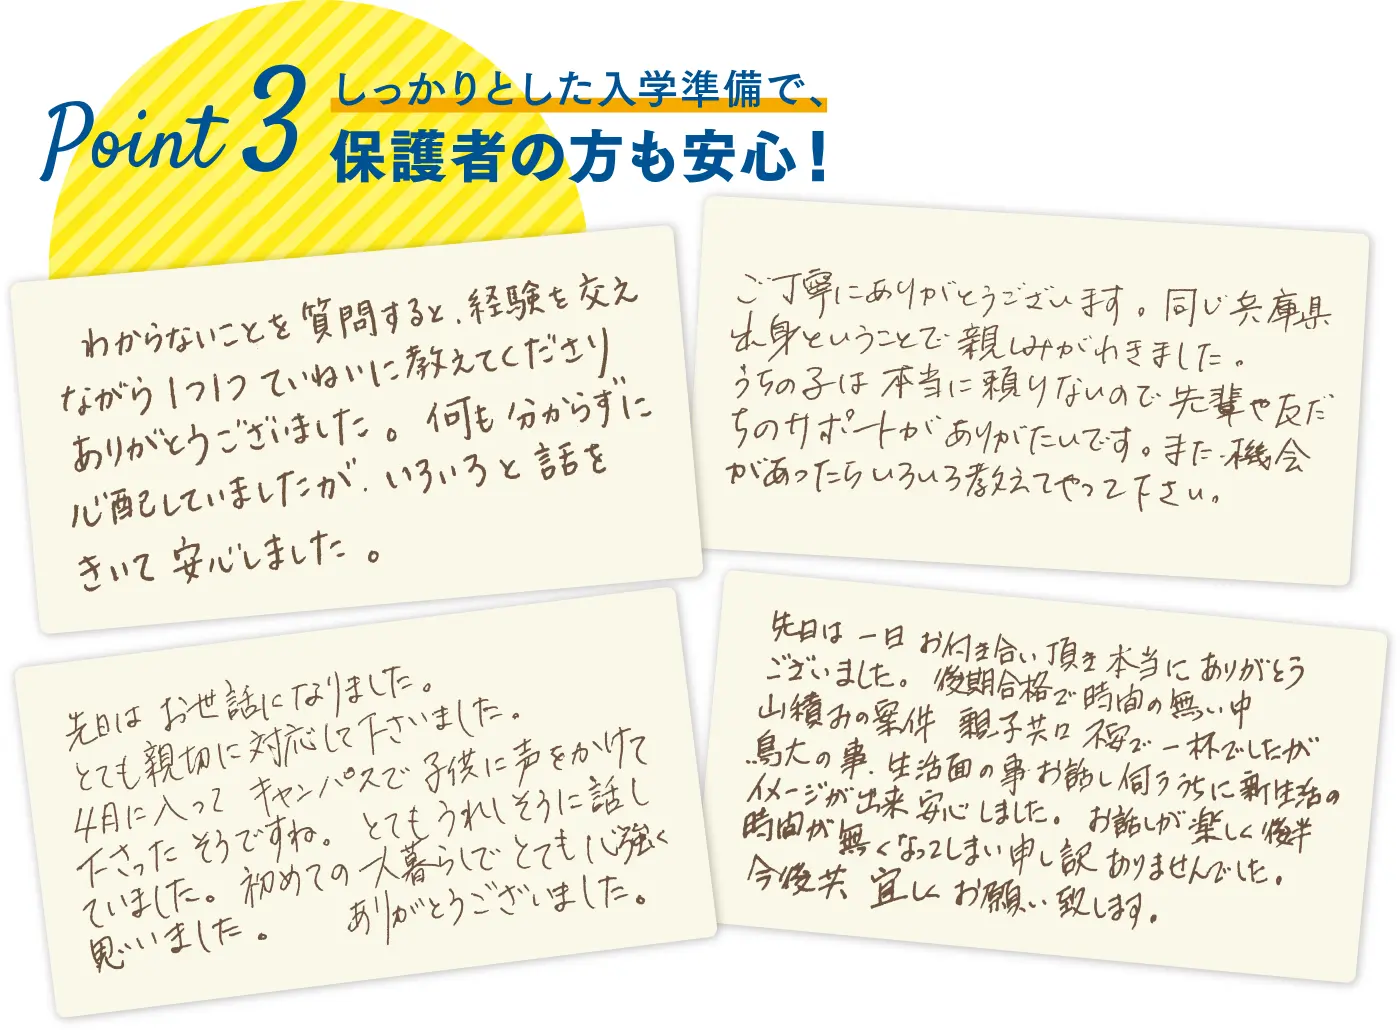 Point 3
しっかりとした入学準備で、
保護者の方も安心！
わからないことを質問すると、経験を交え
ながら1つ1つていねいに教えてくださり
ありがとうございました。何も分からずに
心配していましたが、いろいろと話を
きいて安心しました。
ご丁寧にありがとうございます。同じ兵庫県
出身ということで親しみがわきました。
うちの子は本当に頼りないので先輩や友だ
ちのサポートがありがたいです。また機会
があったらいろいろ教えてやって下さい。
先日はお世話になりました。
とても親切に対応して下さいました。
4月に入ってキャンパスで子供に声をかけて
下さったそうですね。とてもうれしそうに話し
ていました。初めての一人暮らしでとても心強く
思いました。　ありがとうございました。
先日は一日お付き合い頂き本当にありがとう
ございました。後期合格で時間の無い中
山積みの案件　親子共口　不安で一杯でしたが
鳥大の事、生活面の事お話し伺ううちに新生活の
イメージが出来安心しました。お話しが楽しく後半
時間が無くなってしまい申し訳ありませんでした。
今後共宜しくお願い致します。